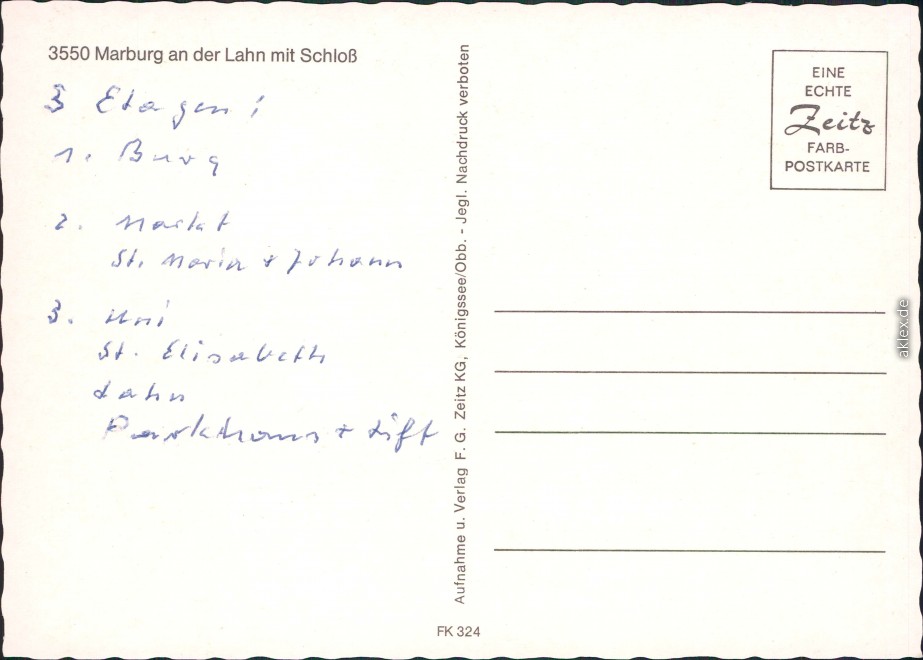 3550 Marburg an der Lahn mit Schloß
3 Etagen:
1. Burg
2. Markt
St. Maria + Johann
3. Uni
St. Elisabeth
Lahn
Parkhaus + Lift
Aufnahme u. Verlag F. G. Zeitz KG, Königssee/Obb. - Jegl. Nachdruck verboten
FK 324
EINE
ECHTE
Zeitz
FARB-
POSTKARTE
aklex.de